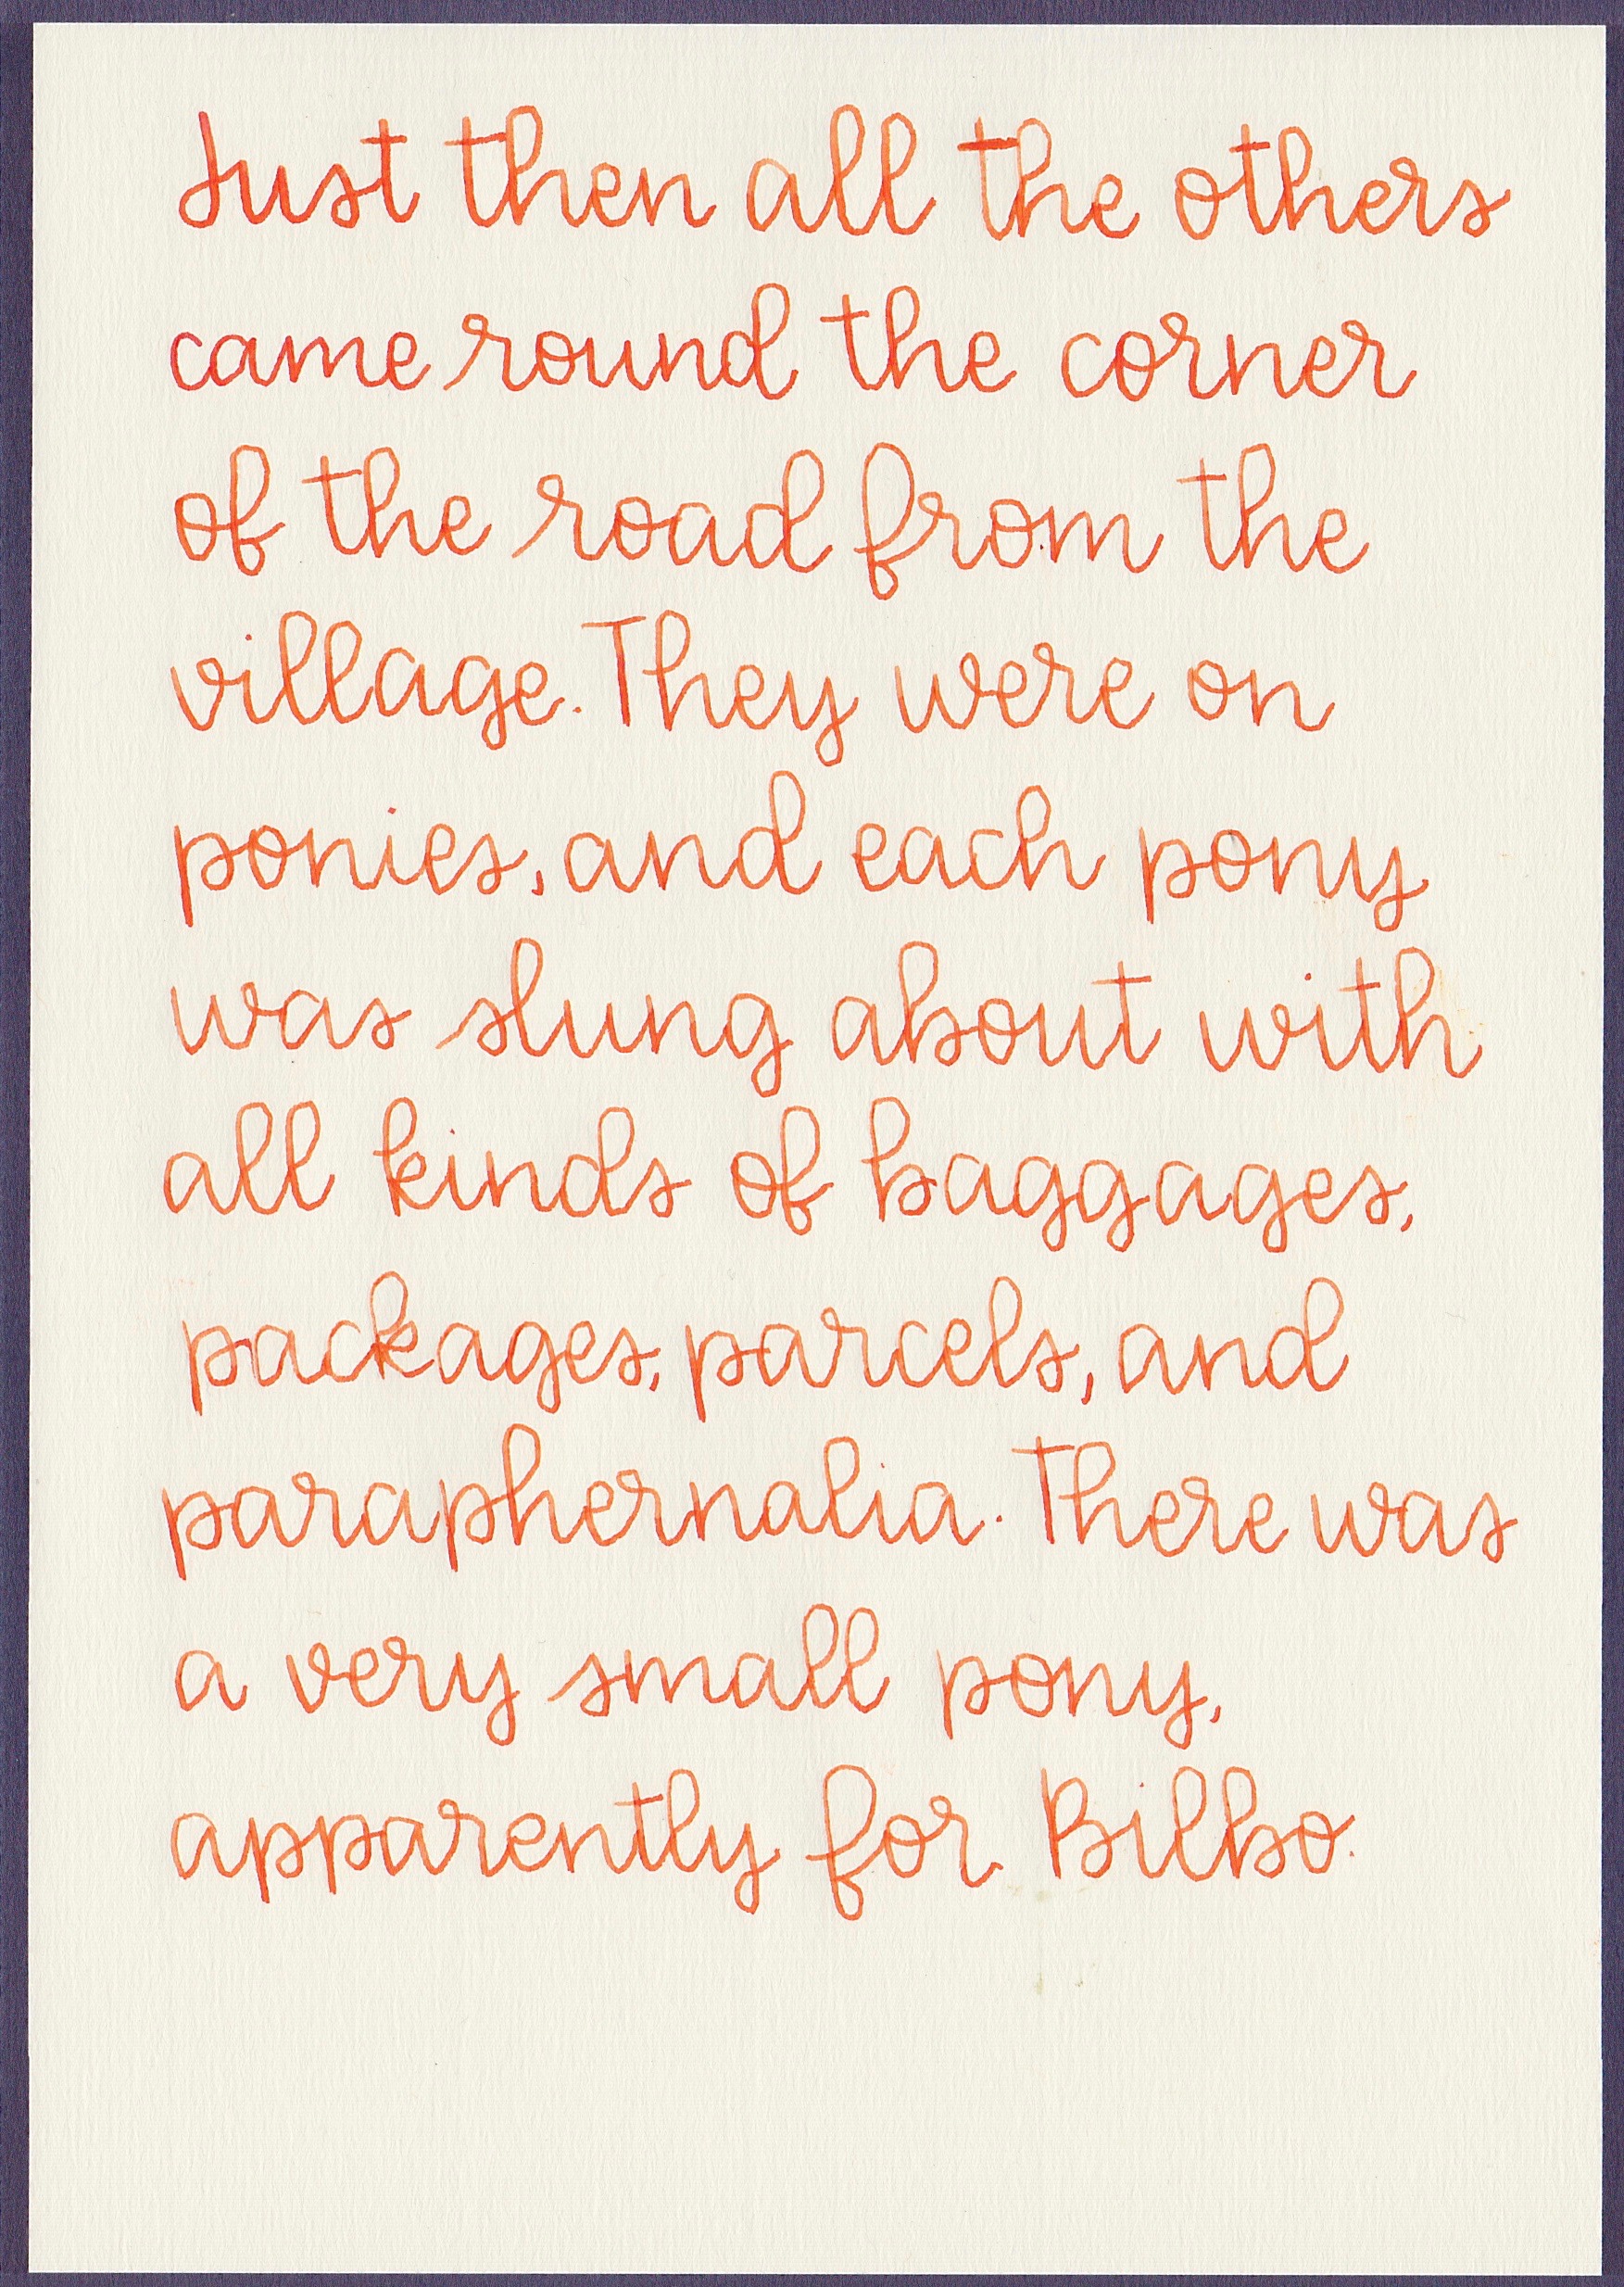 Just then all the others
came round the corner
of the road from the
village. They were on
ponies, and each pony
was slung about with
all kinds of baggages,
packages, parcels, and
paraphernalia. There was
a very small pony,
apparently for Bilbo.